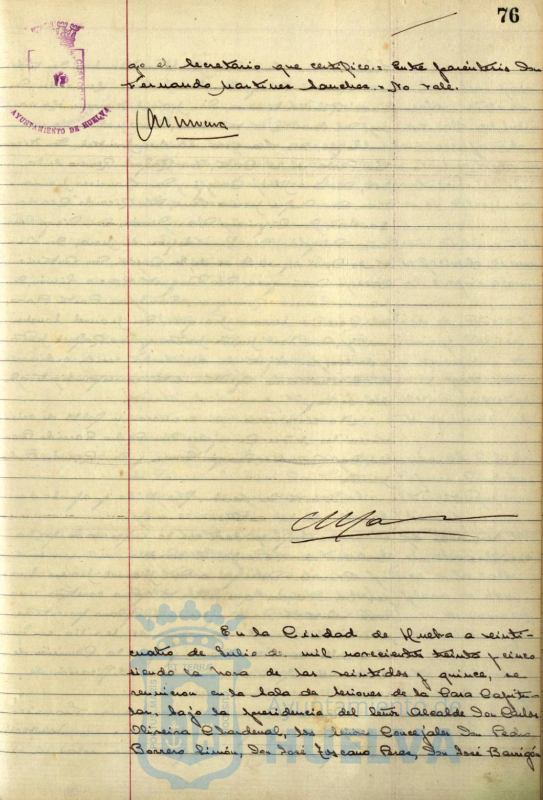 76
AYUNTAMIENTO DE HUELVA
go el Secretario que certifico.= Entre parentesis Don
Fernando Martinez Sanchez.= No vale.
En la Ciudad de Huelva a veinti-
cuatro de Julio de mil novecientos treinta y cinco
siendo la hora de las veintidos y quince, se
reunieron en la Sala de Sesiones de la Casa Capitu-
lar, bajo la presidencia del Señor Alcalde Don Carlos
Oliveira Chardenal, los Señores Concejales Don Pedro
Borrero Limón, Don José Toscano Perez, Don José Barrigón
Ayuntamiento de
HUELVA